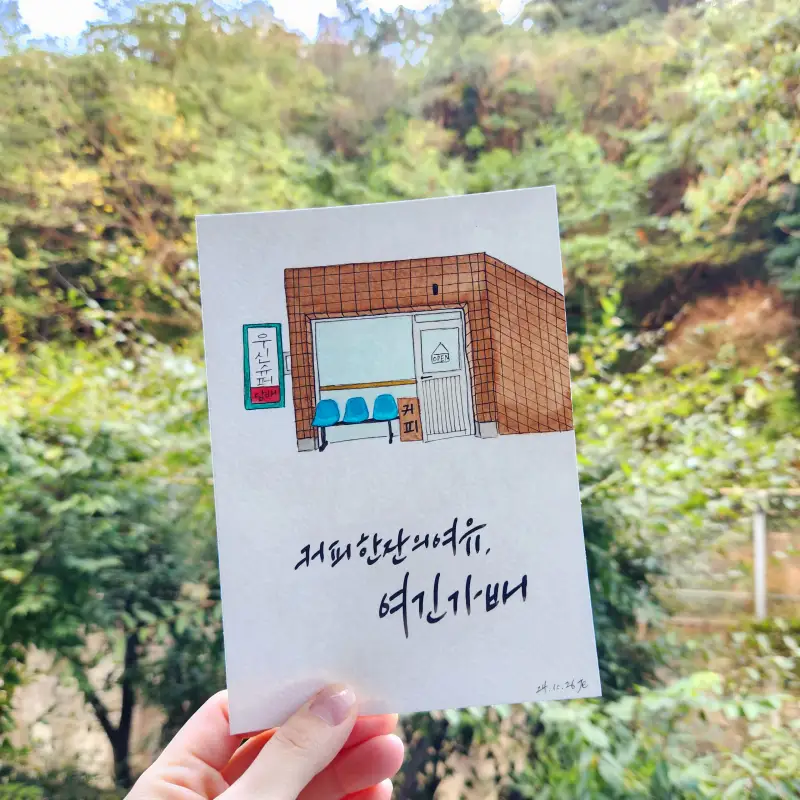 우신슈퍼
담배
OPEN
커피
커피 한잔의 여유,
여긴가배
24.11.26 JE